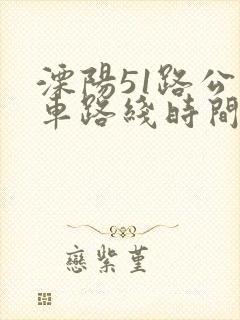 溧陽51路公
車路綫時間
戀紫堇